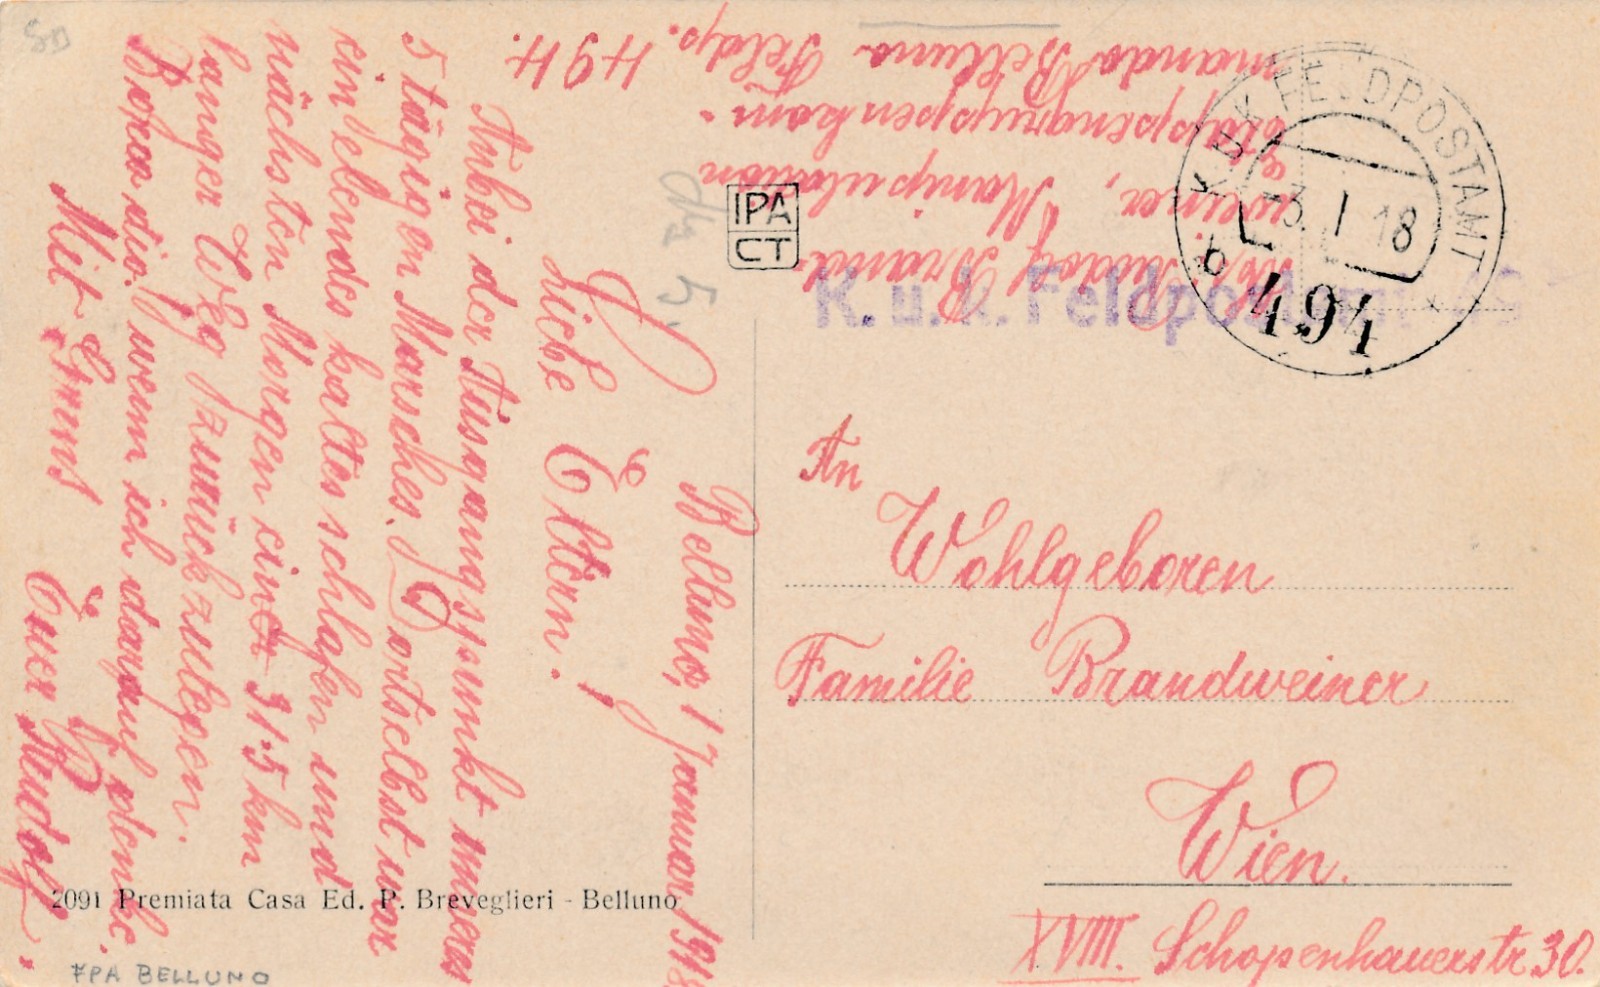 Belluno, 1 Januar 1918
Liebe Eltern!
Anbei der Ausgangspunkt unseres
5 tägigen Marsches. Dortselbst war
ein elendes kaltes schlafen und
nächsten Morgen ein 31·5 km
langer Weg zurückzulegen.
Brrr wenn ich darauf denke.
Mit Gruß Euer Rudolf.
Rudolf Brand-
weiner, Manipulation
Etappengruppenkom-
mando Belluno Feldp. 494.
IPA
CT
K. u. k. Feldpostamt
K.U.K. FELDPOSTAMT
-3. I 18
b
494
An
Wohlgeboren
Familie Brandweiner
Wien.
XVIII. Schopenhauerstr 30.
2091 Premiata Casa Ed. P. Breveglieri - Belluno
FPA BELLUNO